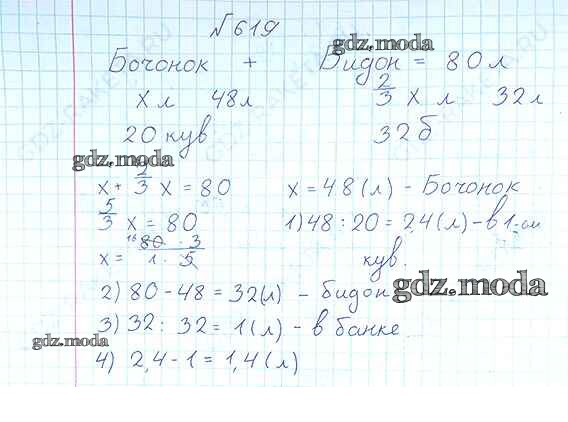 №619
Бочонок + Бидон = 80 л
x л 48 л 2/3 x л 32 л
20 кув 32 б
x + 2/3 x = 80 x = 48 (л) - Бочонок
5/3 x = 80 1) 48 : 20 = 2,4 (л) - в 1-ом
x = 16 80 · 3 / 1 · 5 кув.
2) 80 - 48 = 32 (л) - бидон
3) 32 : 32 = 1 (л) - в банке
4) 2,4 - 1 = 1,4 (л)
gdz.moda
gdz.moda
gdz.moda
gdz.moda